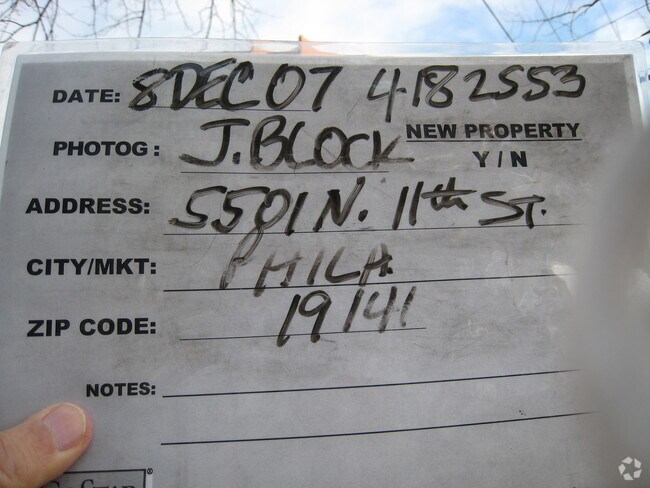 DATE: 8 DEC 07 4182553
PHOTOG: J. BLOCK NEW PROPERTY
Y / N
ADDRESS: 5501 N. 11th ST.
CITY/MKT: PHILA
ZIP CODE: 19141
NOTES:
COSTAR ®